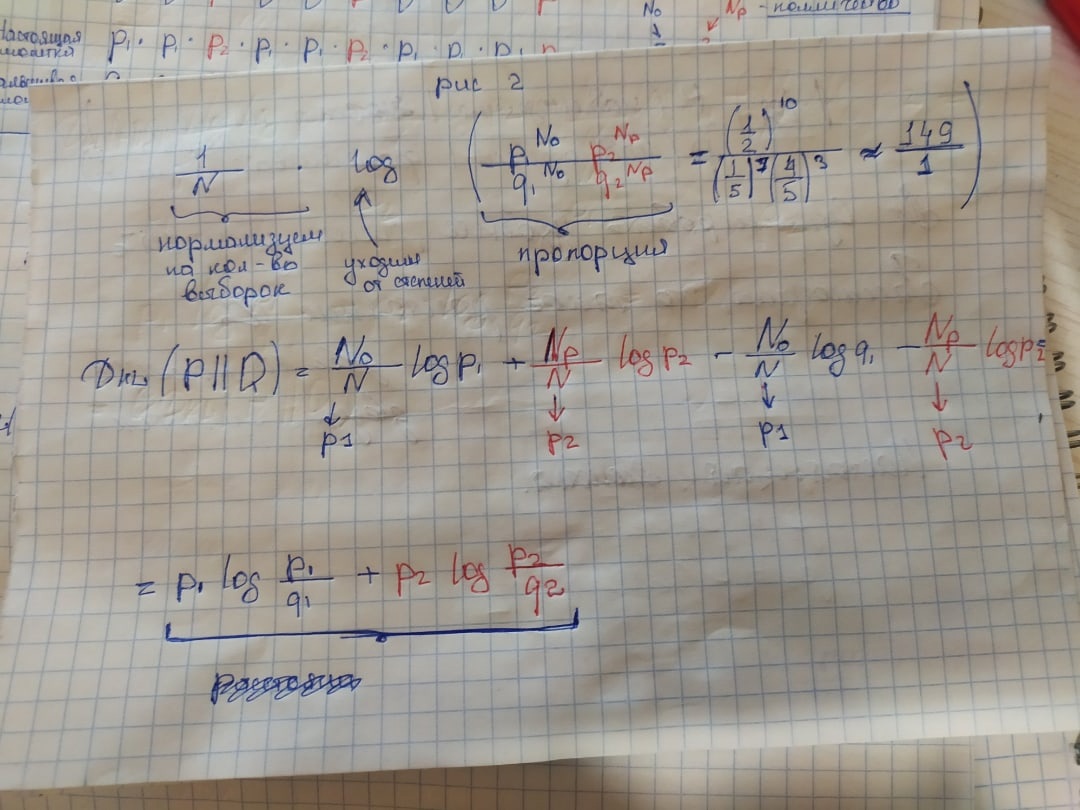 Настоящая p₁ · p₁ · p₂ · p₁ · p₁ · p₂ · p₁ · p₁ · p₁
N₀
Nₚ - количество
рис 2
1/N · log (p^N₀/q₁^N₀ p₂^Nₚ/q₂^Nₚ = (1/2)^10/(1/5)^7(4/5)^3 ≈ 149/1)
нормализуем
на кол-во
выборок
уходим
от степеней
пропорция
Dₖₗ (P||Q) = N₀/N log p₁ + Nₚ/N log p₂ - N₀/N log q₁ - Nₚ/N log
↓ p1 ↓ p2 ↓ p1 ↓ p2
= p₁ log p₁/q₁ + p₂ log p₂/q2